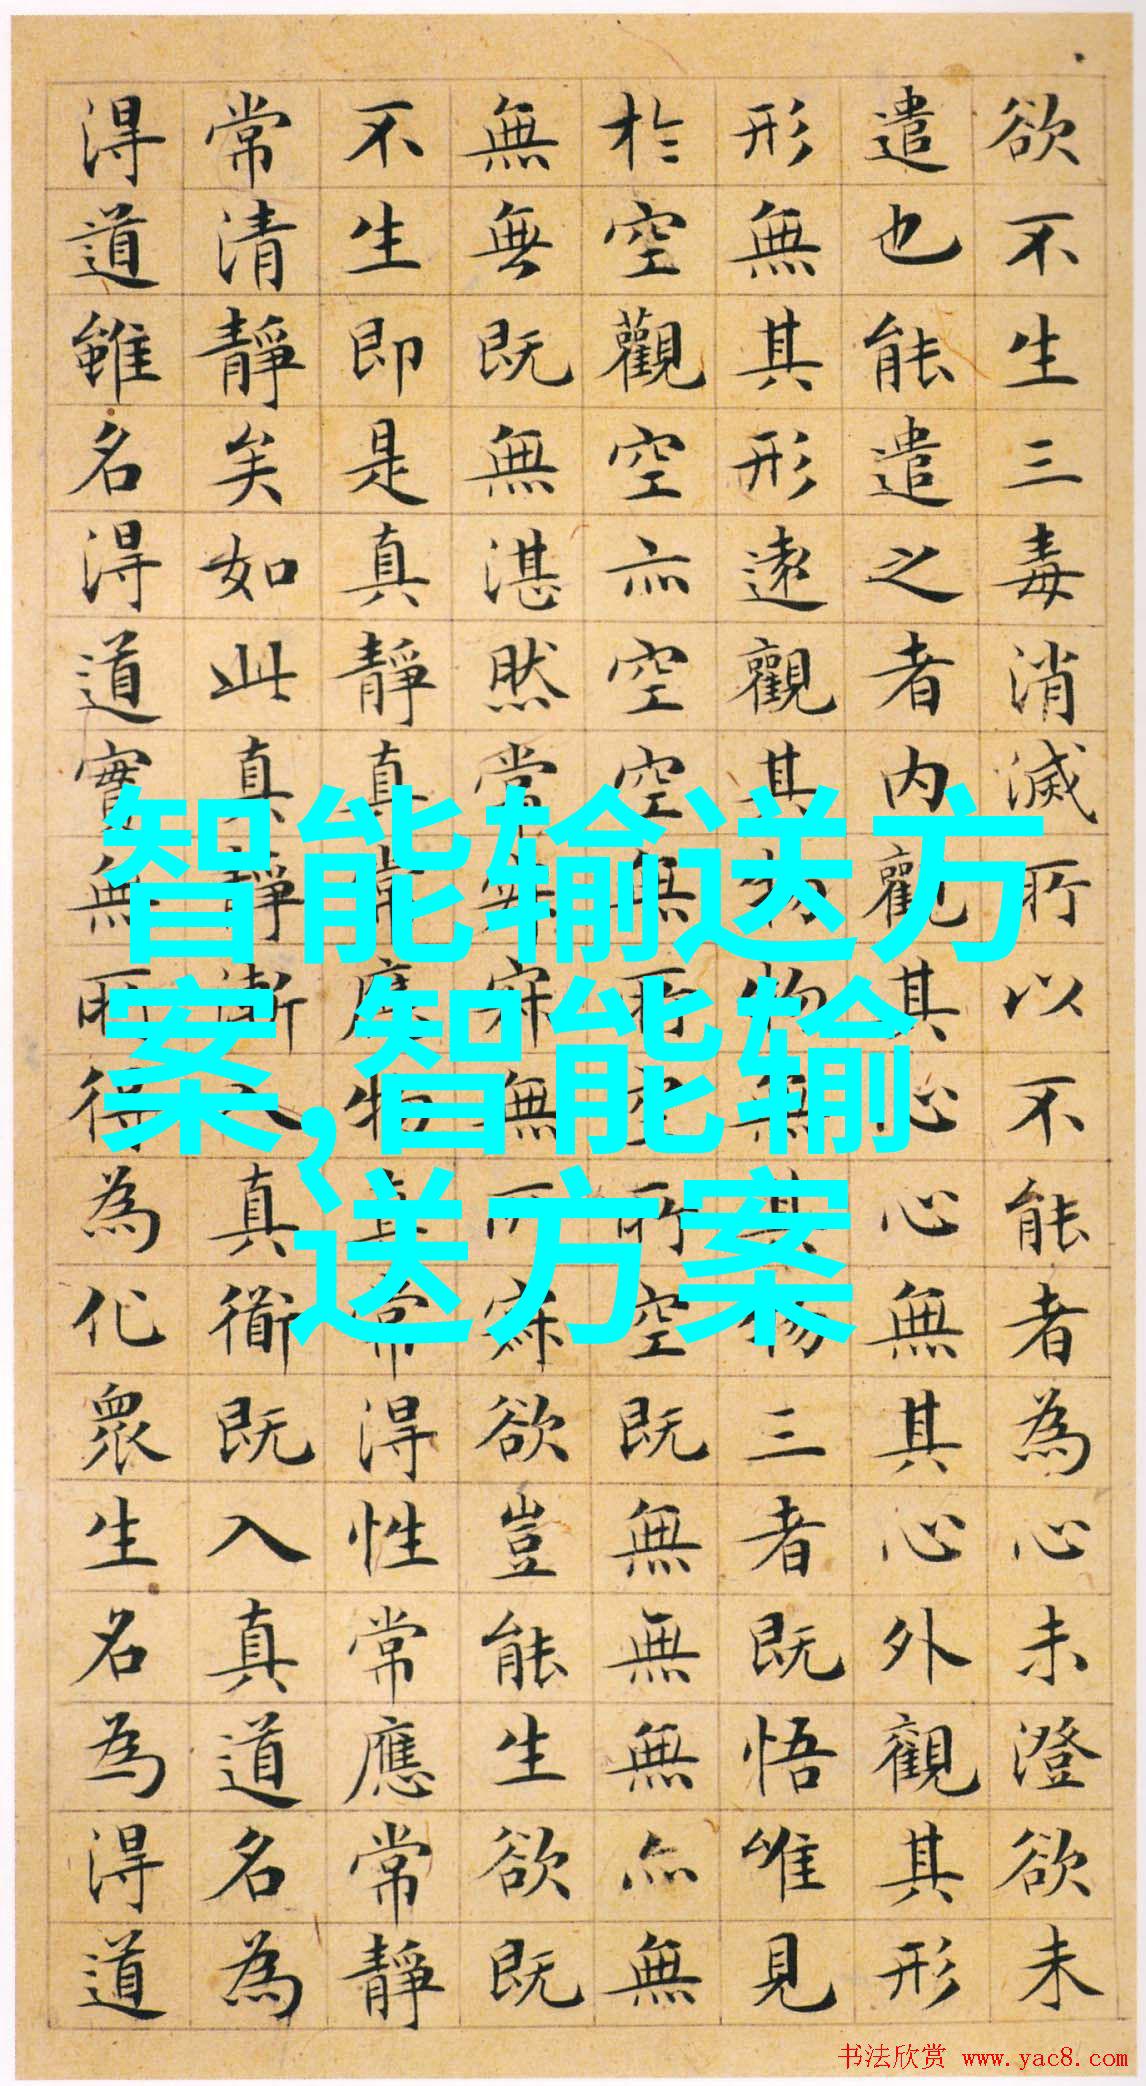 欲不生三毒消滅所以不能者為心未澄欲未
遣也能遣之者内觀其心心無其心外觀其形
形無其形遠觀其物物無其物三者既悟唯見
於空觀空亦空空無所空所空既無無無亦無
無無既無湛然常寂寂無所寂欲豈能生欲既
不生即是真靜真常應物真常得性常應常靜
常清靜矣如此真靜漸入真衜既入真道名為
得道雖名得道實無所得為化眾生名為得道
智能输送方
案,智能输
送方案
书法欣赏 www.yac8.com